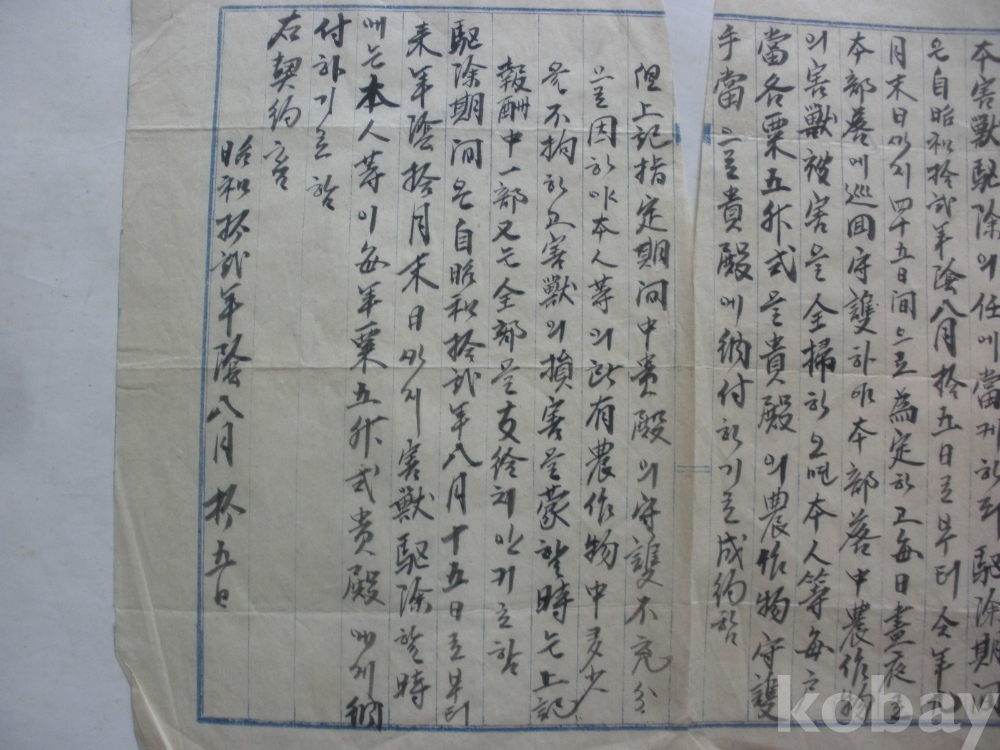 本害獸駆除의任에當케하되駆除期間
은自昭和拾弍年陰八月拾五日로부터今年九
月末日까지四十五日間으로為定하고每日晝夜로
本部落에巡回守護하야本部落中農作物
의害獸被害을全掃하오면本人等每戶
當各粟五升式을貴殿의農作物守護
手當으로貴殿에納付하기로成約함
但上記指定期間中貴殿의守護不充分
으로因하야本人等의所有農作物中多少
을不拘하고害獸의損害을蒙할時는上記
報酬中一部又는全部을支給치안키로함
駆除期間은自昭和拾弍年八月十五日로부터
来年陰拾月末日까지害獸駆除할時
에는本人等이每年粟五升式貴殿에게納
付하기로함
右契約함
昭和拾弍年陰八月拾五日
kobay